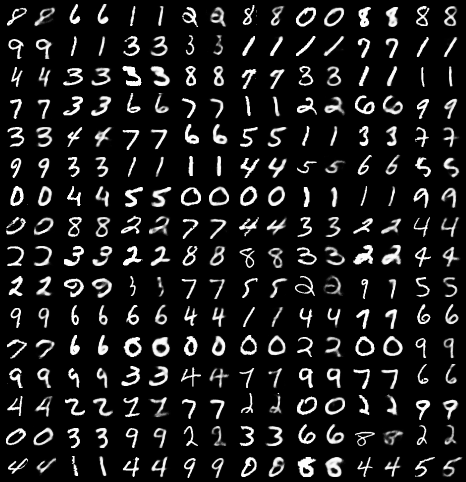 8 8 6 6 1 1 2 2 8 8 0 0 8 8 8 8
9 9 1 1 3 3 3 3 1 1 1 1 7 7 1 1
4 4 3 3 3 3 8 8 7 7 3 3 1 1 1 1
7 7 3 3 6 6 7 7 1 1 2 2 6 6 9 9
3 3 4 4 7 7 6 6 5 5 1 1 3 3 7 7
9 9 3 3 1 1 1 1 4 4 5 5 6 6 5 5
0 0 4 4 5 5 0 0 0 0 1 1 1 1 9 9
0 0 8 8 2 2 7 7 4 4 3 3 2 2 4 4
2 2 3 3 2 2 8 8 8 8 3 3 2 2 4 4
2 2 9 9 3 3 7 7 5 5 2 2 9 9 5 5
9 9 6 6 6 6 4 4 1 1 4 4 7 7 6 6
7 7 6 6 0 0 0 0 0 0 2 2 0 0 9 9
9 9 9 9 3 3 4 4 7 7 9 9 7 7 6 6
4 4 2 2 1 1 7 7 2 2 0 0 2 2 9 9
0 0 3 3 9 9 2 2 3 3 6 6 8 8 2 2
4 4 1 1 4 4 9 9 0 0 8 8 4 4 5 5